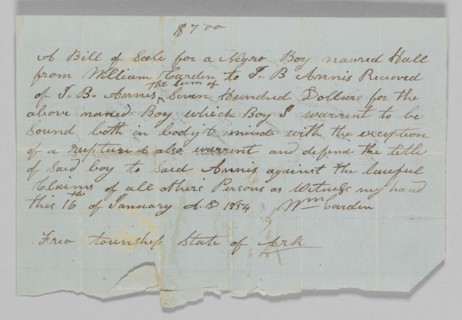 $700
A Bill of Sale for a Negro Boy named Hall
from William Cardin to J. B Annis Received
of J. B. Annis the Sum of Seven Hundred Dollars for the
above named Boy which Boy I warrent to be
Sound both in body & minde with the exception
of a rupture & also warrent and defend the title
of Said boy to Said Annis against the lawful
Claims of all others Persons as Witness my hand
this 16 of January A.D 1854 Wm Cardin
Frio township State of Ark